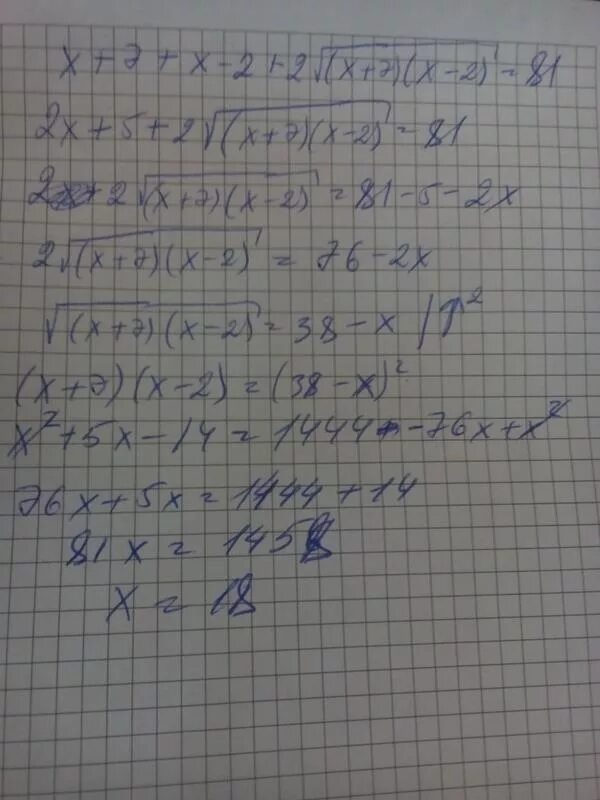 x+7+x-2+2√(x+7)(x-2) = 81
2x+5+2√(x+7)(x-2) = 81
2√(x+7)(x-2) = 81-5-2x
2√(x+7)(x-2) = 76-2x
√(x+7)(x-2) = 38-x /↑²
(x+7)(x-2) = (38-x)²
x²+5x-14 = 1444-76x+x²
76x+5x = 1444+14
81x = 1458
x = 18